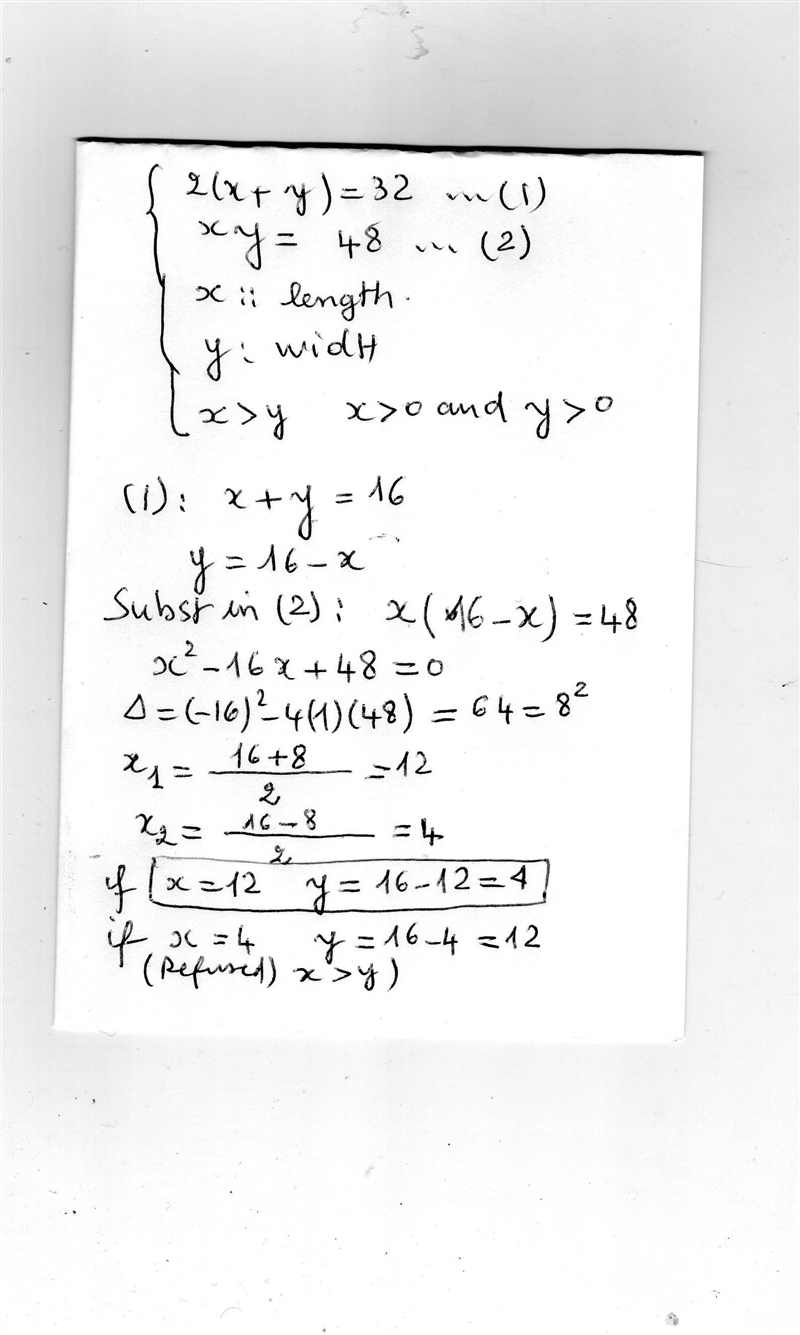 2(x + y) = 32 ... (1)
xy = 48 ... (2)
x :: length.
y : widtH
x > y   x > 0 and y > 0
(1): x + y = 16
y = 16 - x
Subst in (2): x(16 - x) = 48
x² - 16x + 48 = 0
Δ = (-16)² - 4(1)(48) = 64 = 8²
x₁ = (16 + 8)/2 = 12
x₂ = (16 - 8)/2 = 4
if x = 12   y = 16 - 12 = 4
if x = 4   y = 16 - 4 = 12
(Refused) x > y)